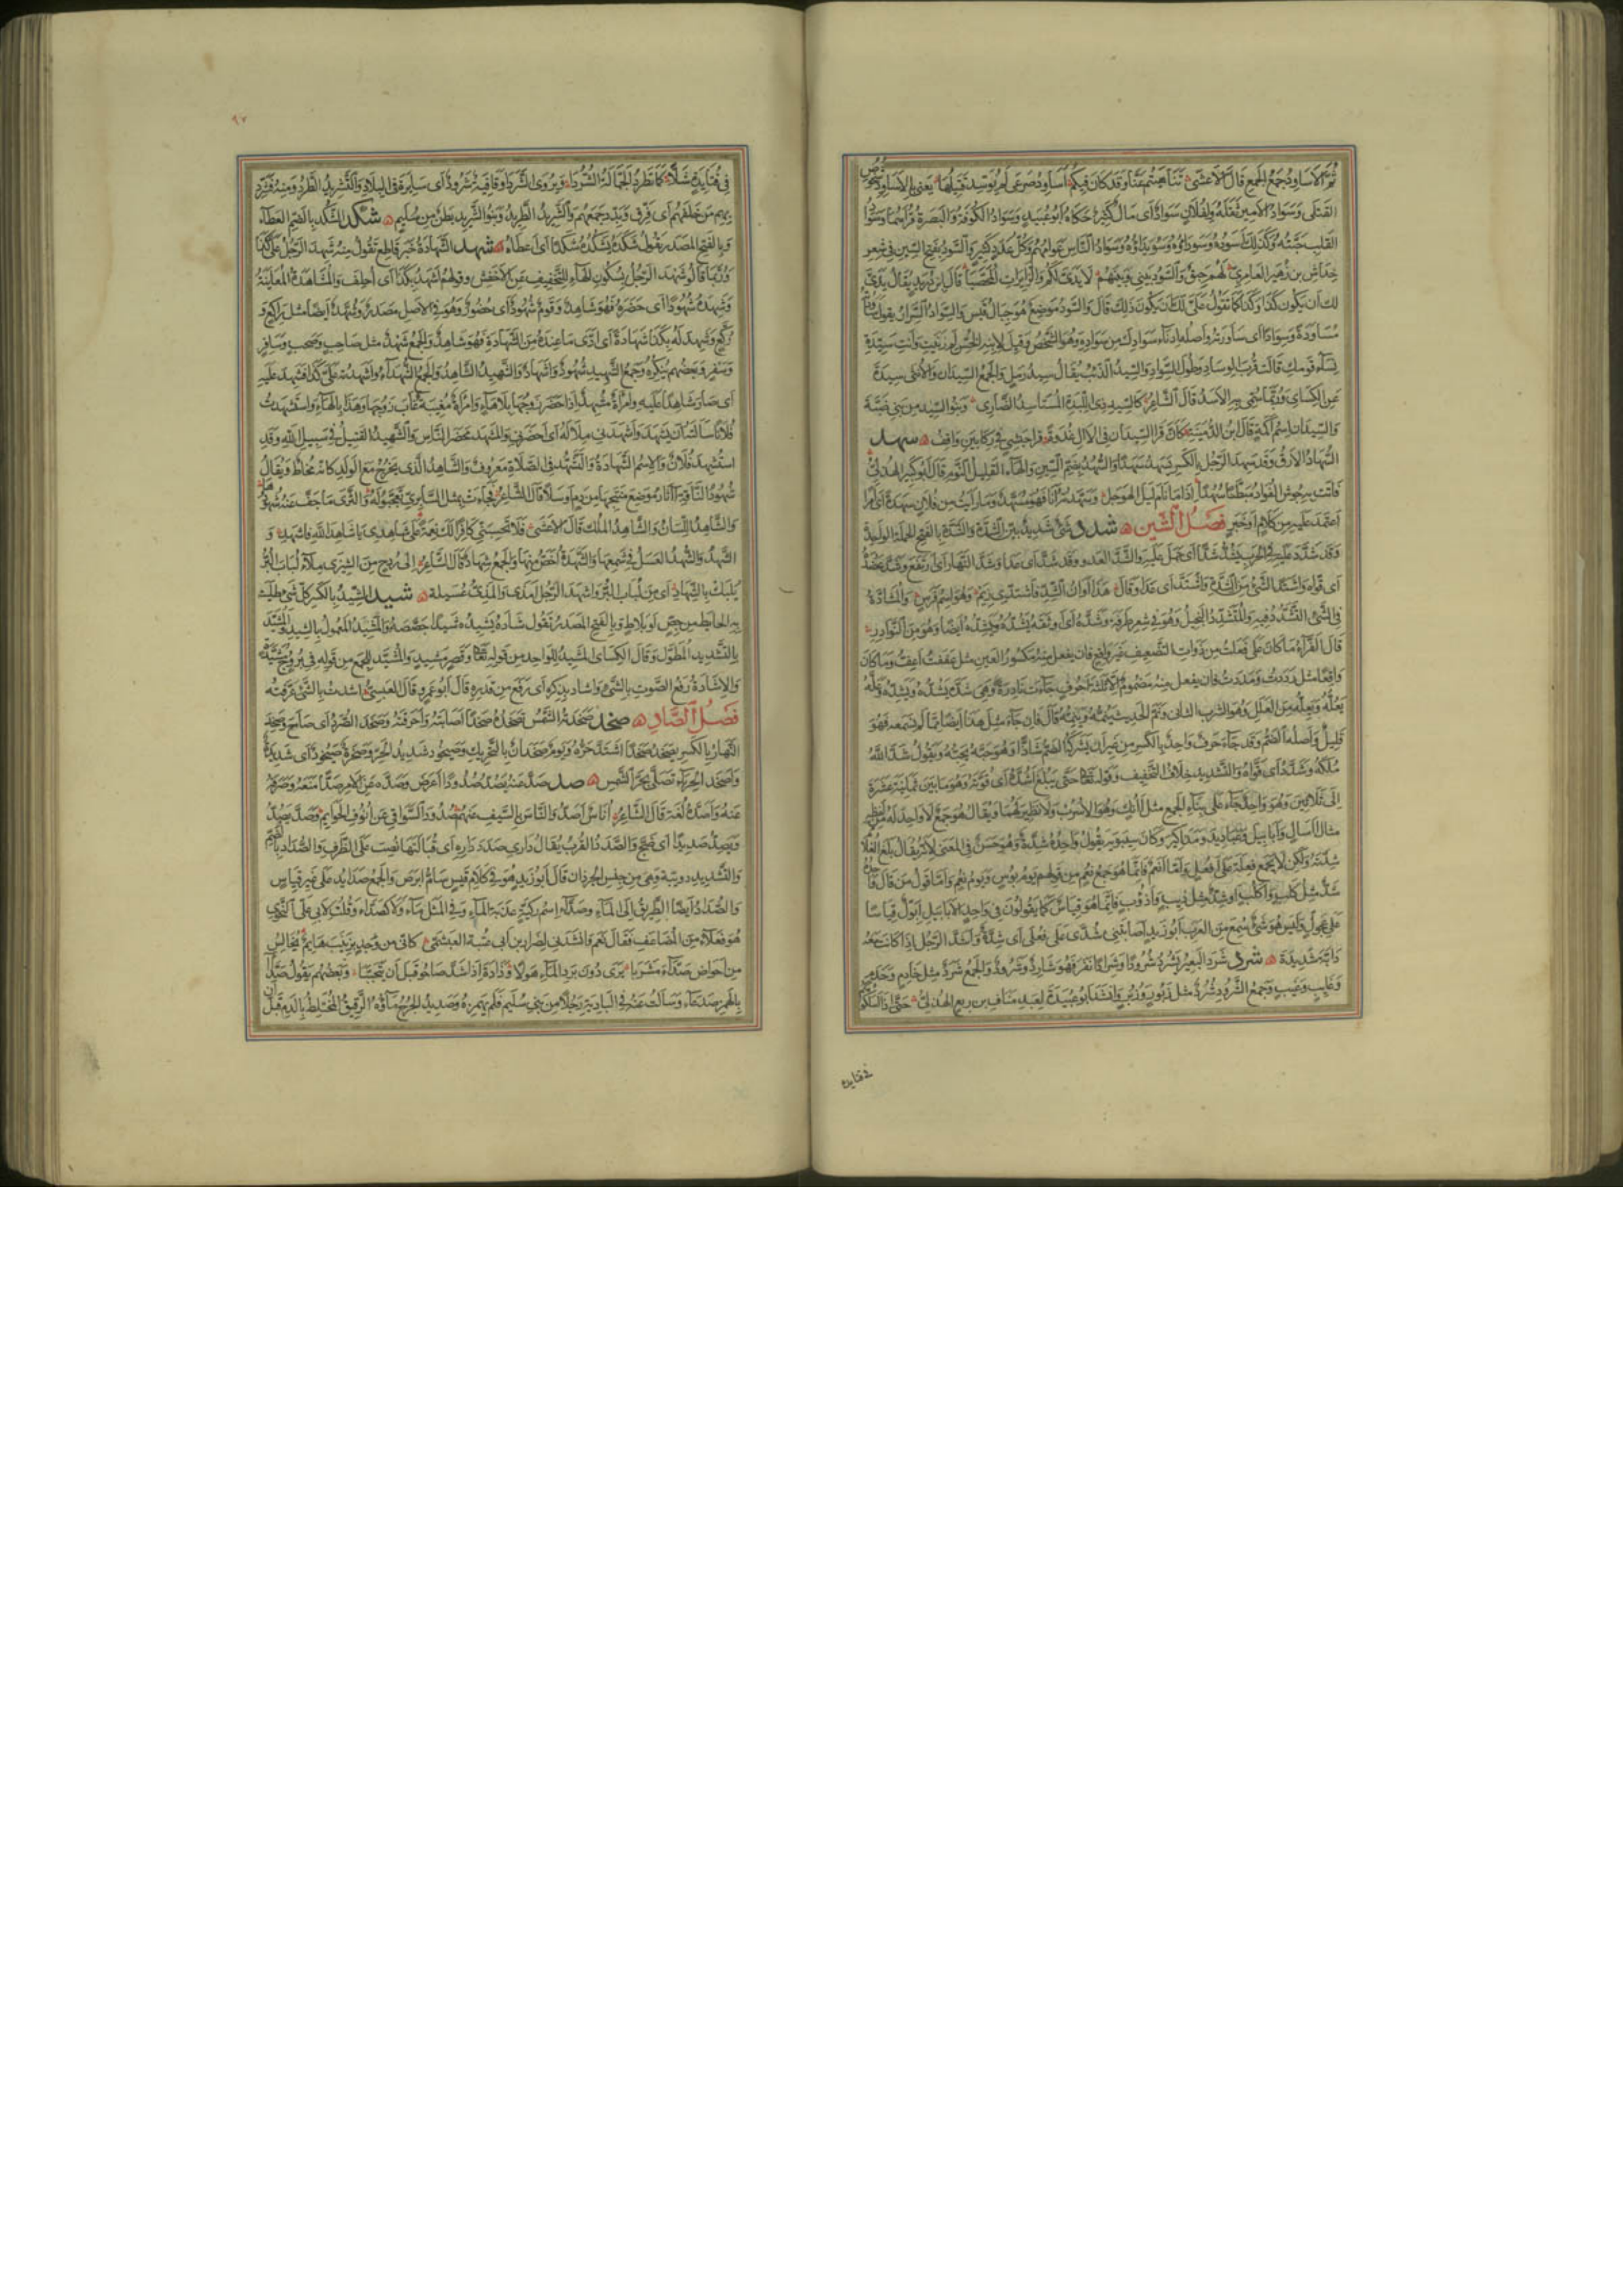 ثم الاساود جمع الجمع قال الاعشى تناهيتم عنا وقد كان فيكم اساود صرعى لم يوسد قتيلها يعنى بالاساود شخوص
القتلى وسواد الامير ثقله ولفلان سواد اى مال كثير حكاه ابو عبيد وسواد الكوفة والبصرة قراهما وسواد
القلب حبته وكذلك اسوده وسوداؤه وسويداؤه وسواد الناس عوامهم وكل عدد كثير والسود بفتح السين فى شعر
خداش بن زهير العامرى لهم حبق والسود بينى وبينهم
لك ان يكون كذا وكذا كما تقول على لك ان يكون ذلك قال والسود موضع هو جبال قيس والسواد السرار يقول ساودته
مساودة وسوادا اى ساررته واصله ادناء سوادك من سواده وهو الشخص وقيل لابنة الخس لم زنيت وانت سيدة
نساء قومك قالت قرب الوساد وطول السواد والسيد الذئب يقال سيد رمل والجمع السيدان والانثى سيدة
عن الكسائى وربما سمى به الاسد قال الشاعر كالسيد ذى اللبدة المستاسد الضارى وبنو السيد من بنى ضبة
والسيدان اسم اكمة قال ابن الدمينة كان قرا السيدان فى الال غدوة قرا حبشى فى ركابين واقف سهد
السهاد الارق وقد سهد الرجل بالكسر يسهد سهدا والسهد بضم السين والهاء القليل النوم قال ابو كبير الهذلى
فاتت به حوش الفؤاد مبطنا سهدا اذا ما نام ليل الهوجل وسهدته انا فهو مسهد وما رايت من فلان سهدة اى امرا
اعتمد عليه من كلام او خبر فصل الشين شدد شىء شديد بين الشدة والشدة بالفتح الحملة الواحدة
وقد شد عليه فى الحرب يشد شدا اى حمل عليه والشد العدو وقد شد اى عدا وشد النهار اى ارتفع وشد عضده
اى قواه واشتد الشىء من الشدة واشتد اى عدا وقال هذا اوان الشد فاشتدى زيم وهو اسم فرس والمشادة
فى الشىء التشدد فيه والمتشدد البخيل وهو فى شعر طرفة وشده اى اوثقه يشده ويشده ايضا وهو من النوادر
قال الفراء ما كان على فعلت من ذوات التضعيف غير واقع فان يفعل منه مكسور العين مثل عففت اعف وما كان
واقعا مثل رددت ومددت فان يفعل منه مضموم الا ثلثة احرف جاءت نادرة وهى شده يشده ويشده وعله
يعله ويعله من العلل وهو الشرب الثانى ونم الحديث ينمه وينمه قال فان جاء مثل هذا ايضا مما لم نسمعه فهو
قليل واصله الضم وقد جاء حرف واحد بالكسر من غير ان يشركه الضم شاذا وهو حبه يحبه وتقول شد الله
ملكه وشدده اى قواه والتشديد خلاف التخفيف وقوله تعالى حتى يبلغ اشده اى قوته وهو ما بين ثمانية عشرة
الى ثلاثين وهو واحد جاء على بناء الجمع مثل الانك وهو الاسرب ولا نظير لهما ويقال هو جمع لا واحد له من لفظه
مثال اسال وابابيل وعباديد ومذاكير وكان سيبويه يقول واحده شدة وهو حسن فى المعنى لانه يقال بلغ الغلام
شدته ولكن لا يجمع فعلة على افعل واما انعم فانما هو جمع نعم من قولهم يوم بؤس ويوم نعم واما قول من قال واحده
شد مثل كلب واكلب او شد مثل ذيب واذؤب فانما هو قياس كما يقولون فى واحد الابابيل ابول قياسا
على عجول وليس هو شىء سمع من العرب ابو زيد اصابتنى شدى على فعلى اى شدة واشد الرجل اذا كانت معه
دابة شديدة شرد شرد البعير يشرد شرودا وشرادا نفر فهو شارد وشرود والجمع شرد مثل خادم وخدم
وغايب وغيب وجمع الشرود شرد مثل زبور وزبر وانشد ابو عبيدة لعبد مناف بن ربع الهذلى حتى اذا اسلكوهم
فى قتايدة
٩٧
فى قتايدة شلا كما تطرد الجمالة الشردا ويروى الشردا وقافية شرود اى سايرة فى البلاد والتشريد الطرد ومنه فشرد
بهم من خلفهم اى فرق وبدد جمعهم والشريد الطريد وبنو الشريد بطن من سليم شكد الشكد بالضم العطاء
وبالفتح المصدر يقول شكده يشكده شكدا اى اعطاه شهد الشهادة خبر قاطع تقول منه شهد الرجل على كذا
وربما قالوا شهد الرجل بسكون الهاء للتخفيف عن الاخفش وقولهم اشهد بكذا اى احلف والمشاهدة المعاينة
وشهده شهودا اى حضره فهو شاهد وقوم شهود اى حضور وهو فى الاصل مصدر وشهد ايضا مثل راكع و
ركع وشهد له بكذا شهادة اى ادى ما عنده من الشهادة فهو شاهد والجمع شهد مثل صاحب وصحب وسافر
وسفر وبعضهم ينكره وجمع الشهيد شهود واشهاد والشهيد الشاهد والجمع الشهداء واشهدته على كذا فشهد عليه
اى صار شاهدا عليه وامراة مشهد اذا حضر زوجها بلا هاء وامراة مغيبة غاب زوجها وهذا بالهاء واستشهدت
فلانا سالته ان يشهد واشهدنى املاكه اى احضرنى والمشهد محضر الناس والشهيد القتيل فى سبيل الله وقد
استشهد فلان والاسم الشهادة والتشهد فى الصلاة معروف والشاهد الذى يخرج مع الولد كانه مخاط ويقال
شهود الناقة اثار موضع منتجها من دم او سلا قال الشاعر فجاءت بمثل السابرى تعجبوا له والثرى ما جف عنه شهودها
والشاهد اللسان والشاهد الملك قال الاعشى فلا تحسبنى كافرا لك نعمة على شاهدى يا شاهد الله فاشهد و
الشهد والشهد العسل فى شمعها والشهدة اخص منها والجمع شهاد قال الشاعر الى ردح من الشيزى ملاء لباب البر
يلبك بالشهاد اى من لباب البر واشهد الرجل امذى والمذى عسيلة شيد الشيد بالكسر كل شىء طليت
به الحايط من جص او بلاط وبالفتح المصدر تقول شاده يشيده شيدا جصصه والمشيد المعمول بالشيد والمشيد
بالتشديد المطول وقال الكسائى المشيد للواحد من قوله تعالى وقصر مشيد والمشيد للجمع من قوله فى بروج مشيدة
والاشادة رفع الصوت بالشىء واشاد بذكره اى رفع من قدره قال ابو عمرو قال العبسى اشدت بالشىء عرفته
فصل الصاد صخد صخدته الشمس تصخده صخدا اصابته واحرقته وصخد الصرد اى صاح وصخد
النهار بالكسر يصخد صخدا اشتد حره ويوم صخدان بالتحريك وصيخود شديد الحر وصخرة صيخود اى شديدة
واصخد الحرباء تصلى بحر الشمس صدد صد عنه يصد صدودا اعرض وصده عن الامر صدا منعه وصرفه
عنه واصده لغة قال الشاعر اناس اصدوا الناس بالسيف عنهم صدود السواقى عن انوف الحوايم وصد يصد
ويصد صديدا اى ضج والصدد القرب يقال دارى صدد داره اى قبالتها نصب على الظرف والصداد بالضم
والتشديد دويبة وهى من جنس الجرذان قال ابو زيد هو فى كلام قيس سام ابرص والجمع صدايد على غير قياس
والصداد ايضا الطريق الى الماء وصداء اسم ركية عذبة الماء وفى المثل ماء ولا كصداء وقلت لابى على النحوى
هو فعلاء من المضاعف فقال نعم وانشدنى لضرار بن ابى ضبة العبشمى كانى من وجد بزينب هايم يخالس
من احواض صداء مشربا يرى دون برد الماء هولا وذادة اذا شد صاحوا قبل ان يتحببا وبعضهم يقول صدآء
بالهمز مثل صدعاء وسالت عنه فى البادية رجلا من بنى سليم فلم يهمزه وصديد الجرح ماؤه الرقيق المختلط بالدم قبل ان